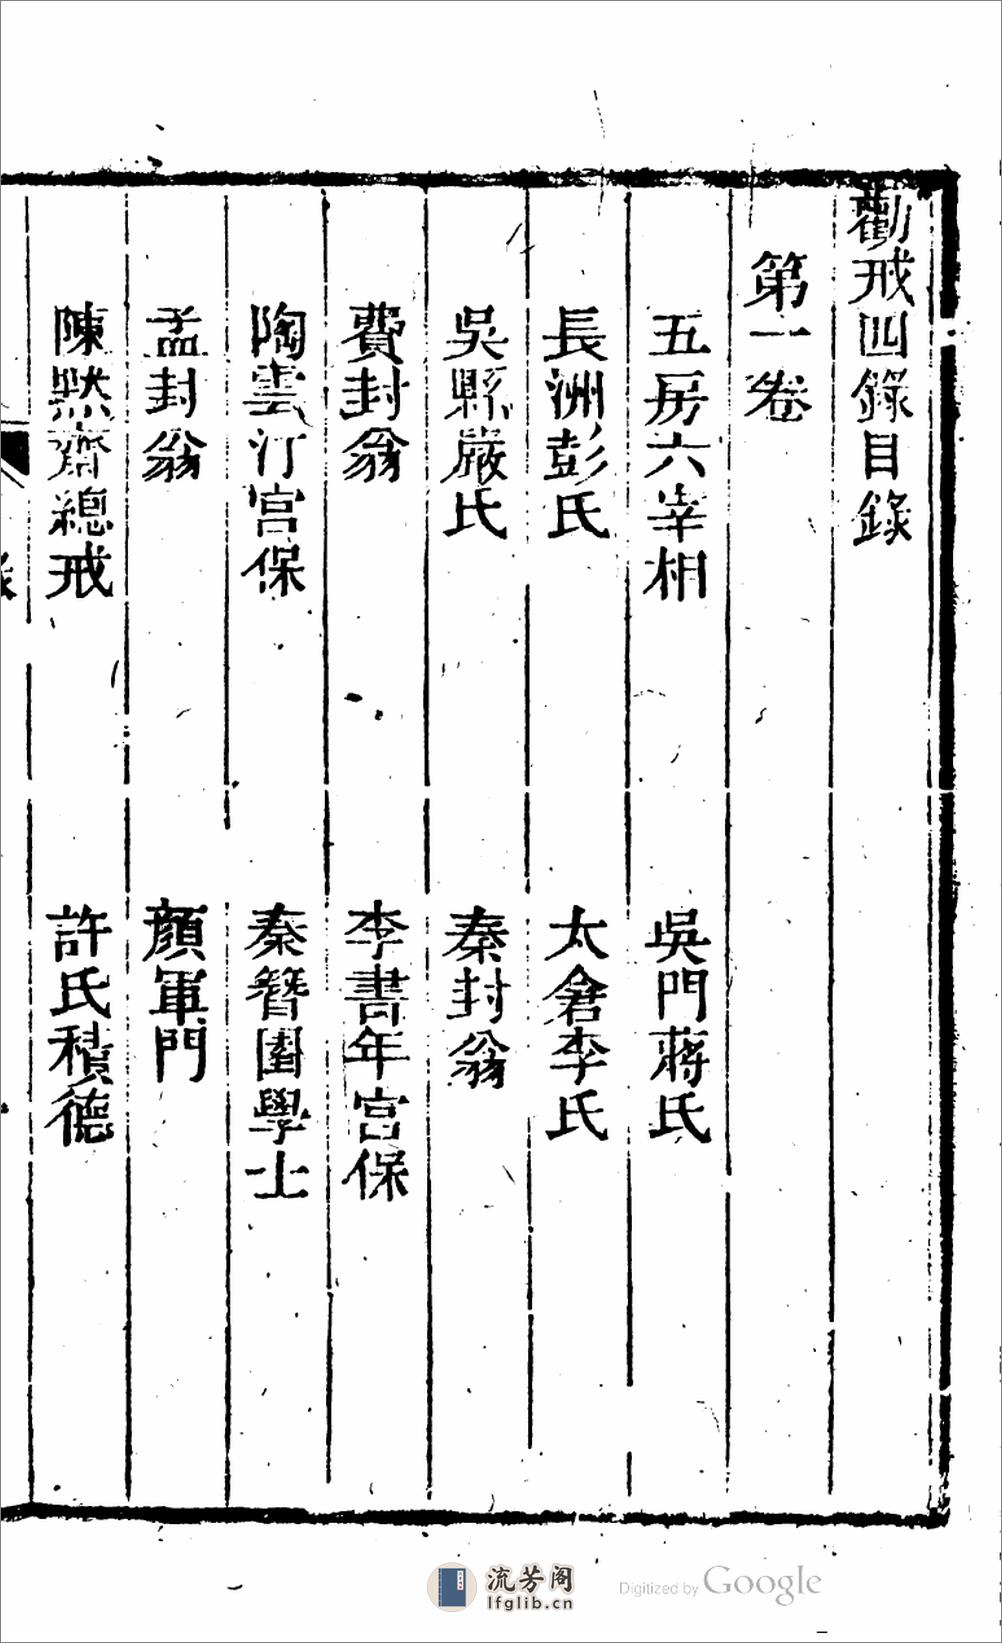 勸戒四錄目錄
第一卷
五房六宰相
吳門蔣氏
長洲彭氏
太倉李氏
吳縣嚴氏
秦封翁
費封翁
李書年宮保
陶雲汀宮保
秦簪園學士
孟封翁
顏軍門
陳默齋總戎
許氏積德
流芳阁
lfglib.cn
Digitized by Google